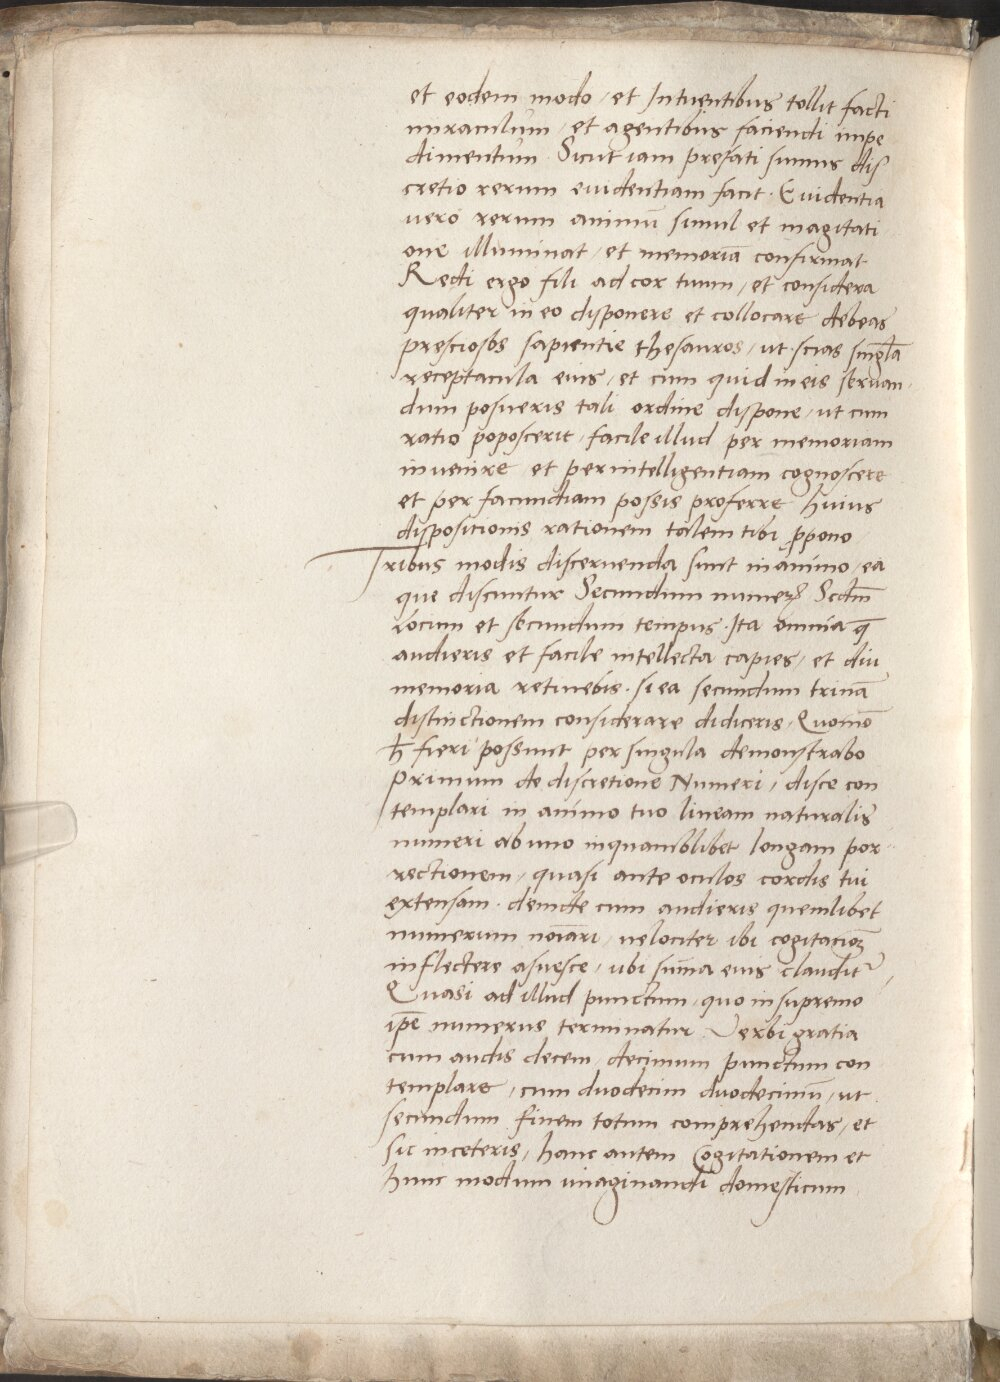 et eodem modo / et Intuentibus tollit facti
miraculum / et agentibus faciendi impe
dimentum. Sicut iam prefati sumus dis
cretio rerum euidentiam facit. Euidentia
uero rerum animū simul et magitati
one illuminat / et memoriā confirmat
Redi ergo fili ad cor tuum / et considera
qualiter in eo disponere et collocare debeas
presciosos sapientie thesauros / ut scias singła
receptacula eius / et cum quid in eis seruan
dum posueris tali ordine dispone / ut cum
ratio poposcerit / facile illud per memoriam
inuenire et per intelligentiam cognoscere
et per facundiam possis proferre huius
dispositionis rationem talem tibi ꝓpono
Tribus modis discernenda sunt in animo ea
que discuntur Secundum numeꝝ Scđm
Locum et secundum tempus. Ita omnia q̄
audieris et facile intellecta capies / et diu
memoria retinebis. si ea secundum trinā
distinctionem considerare didiceris. Quomō
ħ fieri possunt per singula demonstrabo
Primum de discretione Numeri / disce con
templari in animo tuo lineam naturalis
numeri ab uno in quamblibet longam por
rectionem / quasi ante oculos cordis tui
extensam. deinde cum audieris quemlibet
numerum noīari / uelociter ibi cogitacionē
inflectere asuesce / ubi sūma eius clauditʳ
Quasi ad illud punctum / quo in supremo
ip̄e numerus terminatur. Verbi gratia
cum audis decem decimum punctum con
templare / cum duodecim duodecimū / ut
secundum finem totum comprehendas / et
sic in ceteris / hanc autem Cogitationem et
hunc modum imaginandi domesticum